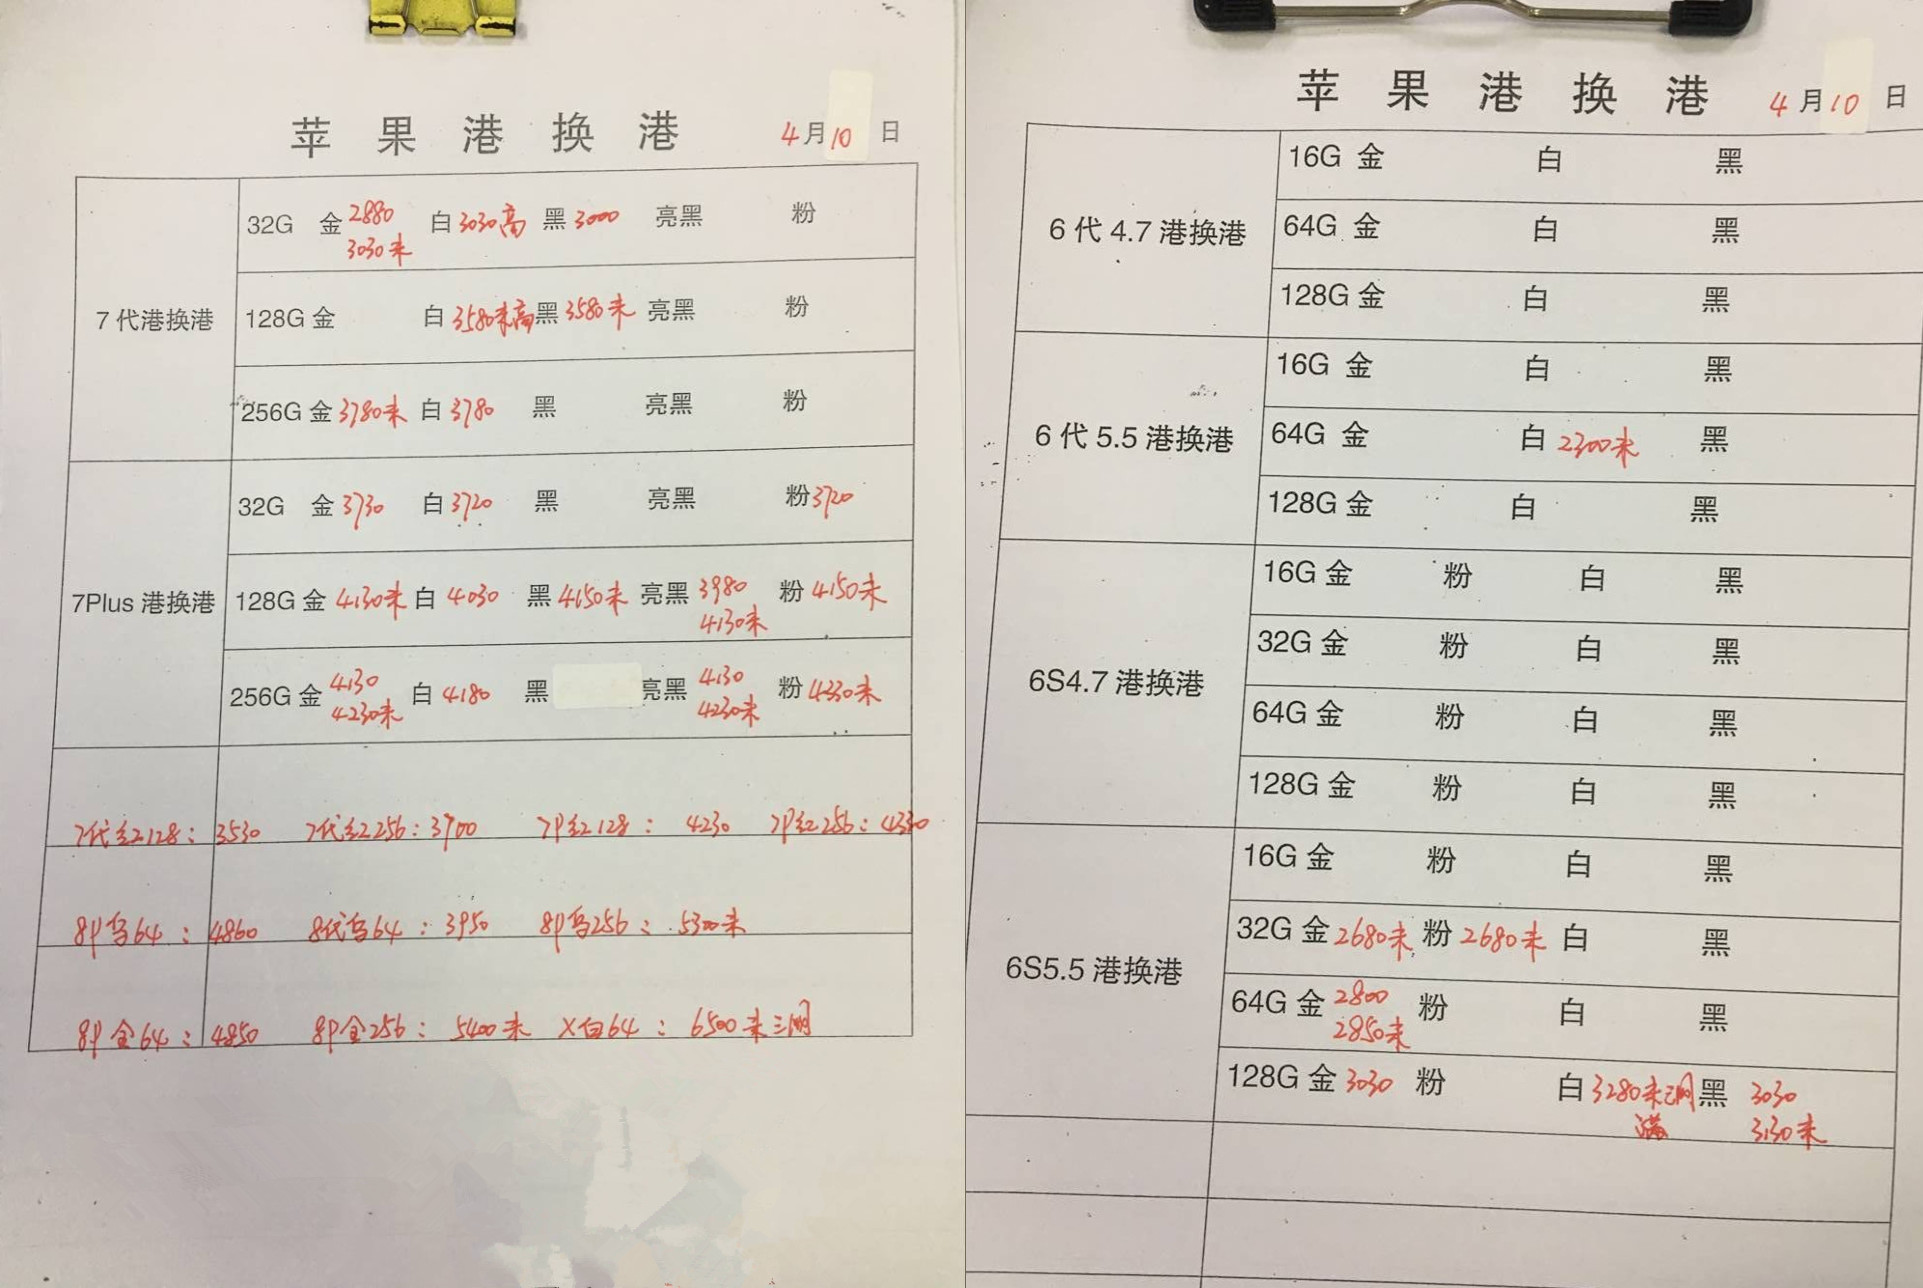 苹果港换港 4月10日
7代港换港
32G 金 2880 白 3030高 黑 3000 亮黑 粉
3030未
128G 金 白 3580未高 黑 3580未 亮黑 粉
256G 金 3780未 白 3780 黑 亮黑 粉
7Plus 港换港
32G 金 3730 白 3720 黑 亮黑 粉 3720
128G 金 4130未 白 4030 黑 4150未 亮黑 3980 粉 4150未
4130未
256G 金 4130 白 4180 黑 亮黑 4130 粉 4330未
4230未 4230未
7代红128: 3530 7代红256: 3700 7P红128: 4230 7P红256: 4330
8P 64: 4860 8代 64: 3950 8P 256: 5300未
8P金64: 4850 8P金256: 5400未 X白64: 6500未三网
苹果港换港 4月10日
6代 4.7 港换港
16G 金 白 黑
64G 金 白 黑
128G 金 白 黑
6代 5.5 港换港
16G 金 白 黑
64G 金 白 2300未 黑
128G 金 白 黑
6S4.7 港换港
16G 金 粉 白 黑
32G 金 粉 白 黑
64G 金 粉 白 黑
128G 金 粉 白 黑
6S5.5 港换港
16G 金 粉 白 黑
32G 金 2680未 粉 2680未 白 黑
64G 金 2800 粉 白 黑
2850未
128G 金 3030 粉 白 3280未三网 黑 3030
满 3130未